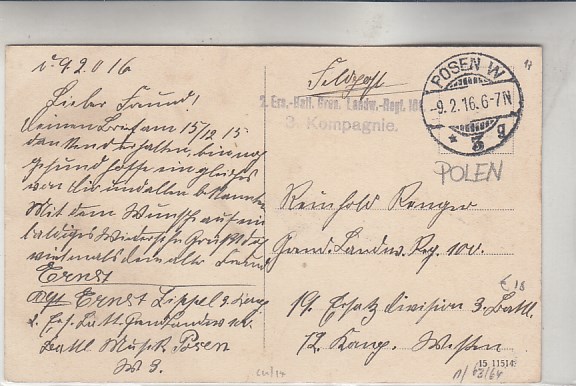 9 2 0 16
Lieber Freund!
deinen Brief am 15/12 15
dankend erhalten, bin noch
gesund hoffe ein gleiches
von dir und allen bekannten
Mit dem Wunsch auf ein
baldiges Wiedersehn Grüßt dich
vielmals dein alter Freund
Ernst
Ernst Lippel 3. Komp
Batl Musik Posen
W 3.
Feldpost
2. Ers.-Batl. Gren. Landw.-Regt.
3. Kompagnie.
POSEN W
-9.2.16.6-7N
* 3 g
POLEN
Reinhold Renger
Grend. Landw. Reg. 100.
19. Ersatz division 3. Batl.
12. Komp. Westen
€ 18
15 11514